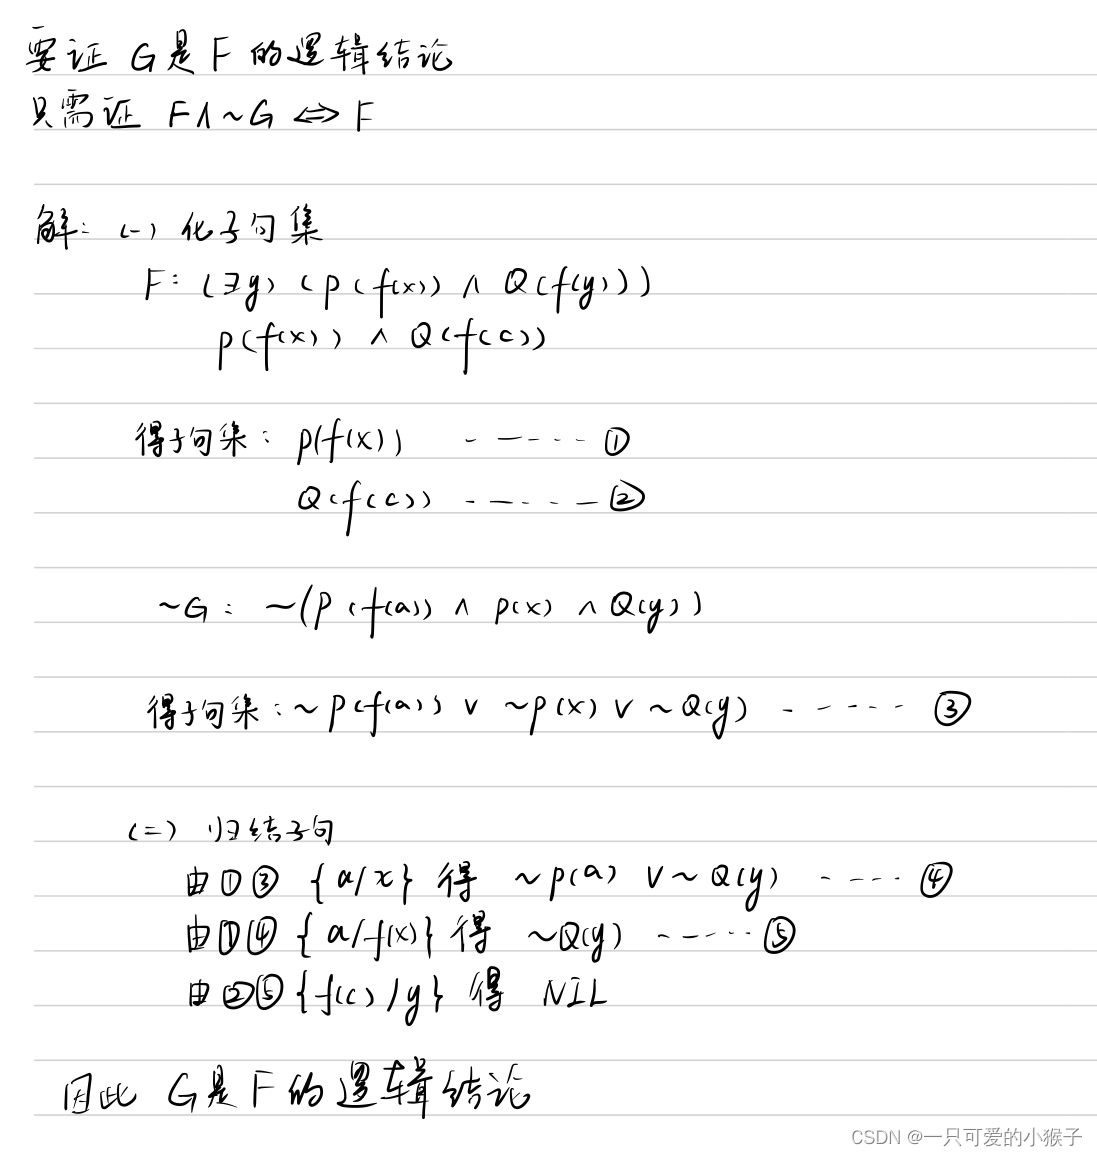 要证 G是F的逻辑结论
只需证 F∧~G ⇔ F
解: (一) 化子句集
F: (∃y) (P(f(x)) ∧ Q(f(y)))
p(f(x)) ∧ Q(f(c))
得子句集: p(f(x)) ------ ①
Q(f(c)) ------ ②
~G: ~(P(f(a)) ∧ p(x) ∧ Q(y))
得子句集: ~P(f(a)) ∨ ~p(x) ∨ ~Q(y) ------ ③
(二) 归结子句
由①③ {a/x} 得 ~p(a) ∨ ~Q(y) ---- ④
由①④ {a/f(x)} 得 ~Q(y) ----- ⑤
由②⑤ {f(c)/y} 得 NIL
因此 G是F的逻辑结论
CSDN @一只可爱的小猴子